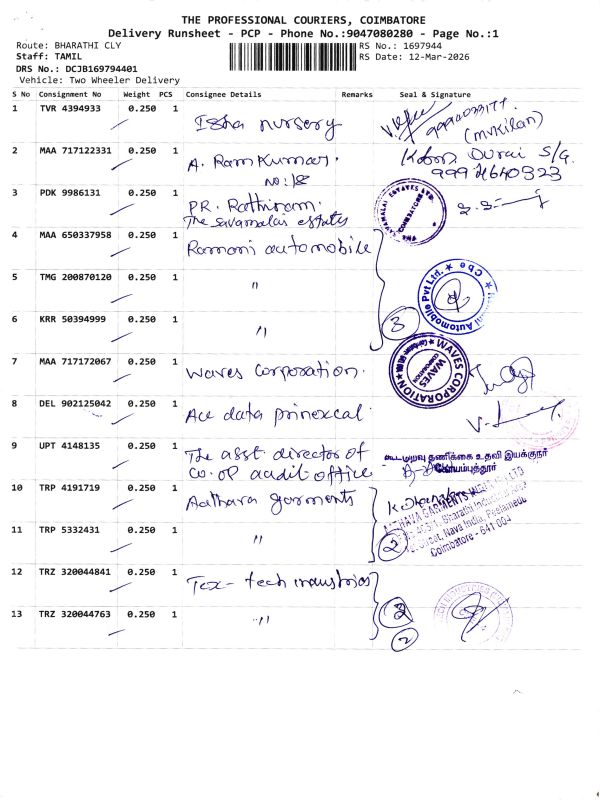 THE PROFESSIONAL COURIERS, COIMBATORE
Delivery Runsheet - PCP - Phone No.:9047080280 - Page No.:1
Route: BHARATHI CLY RS No.: 1697944
Staff: TAMIL RS Date: 12-Mar-2026
DRS No.: DCJB169794401
Vehicle: Two Wheeler Delivery
S No Consignment No Weight PCS Consignee Details Remarks Seal & Signature
1 TVR 4394933 0.250 1 Isha nursery
(Mukilan)
2 MAA 717122331 0.250 1 A. Ramkumar.
No: 18
3 PDK 9986131 0.250 1 PR. Rathinam.
The Savamalai estates
4 MAA 650337958 0.250 1 Ramani automobile
5 TMG 200870120 0.250 1 "
6 KRR 50394999 0.250 1 " 3
7 MAA 717172067 0.250 1 Waves Corporation. WAVES CORPORATION
8 DEL 902125042 0.250 1 Ace data
9 UPT 4148135 0.250 1 The asst director of
co.op audit office
கூட்டுறவு தணிக்கை உதவி இயக்குநர்
கோயம்புத்தூர்
10 TRP 4191719 0.250 1 Aathava garments
11 TRP 5332431 0.250 1 " 2
Coimbatore - 641 004
12 TRZ 320044841 0.250 1 Tex-tech industries
13 TRZ 320044763 0.250 1 " 2